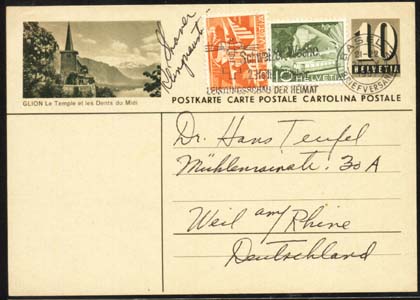 10
HELVETIA
BASEL
BRIEFVERSAND
Schweizer Woche
LEISTUNGSSCHAU DER HEIMAT
10 HELVETIA
GLION Le Temple et les Dents du Midi
POSTKARTE CARTE POSTALE CARTOLINA POSTALE
Dr. Hans Teufel
30 A
Weil am/Rhine
Deutschland